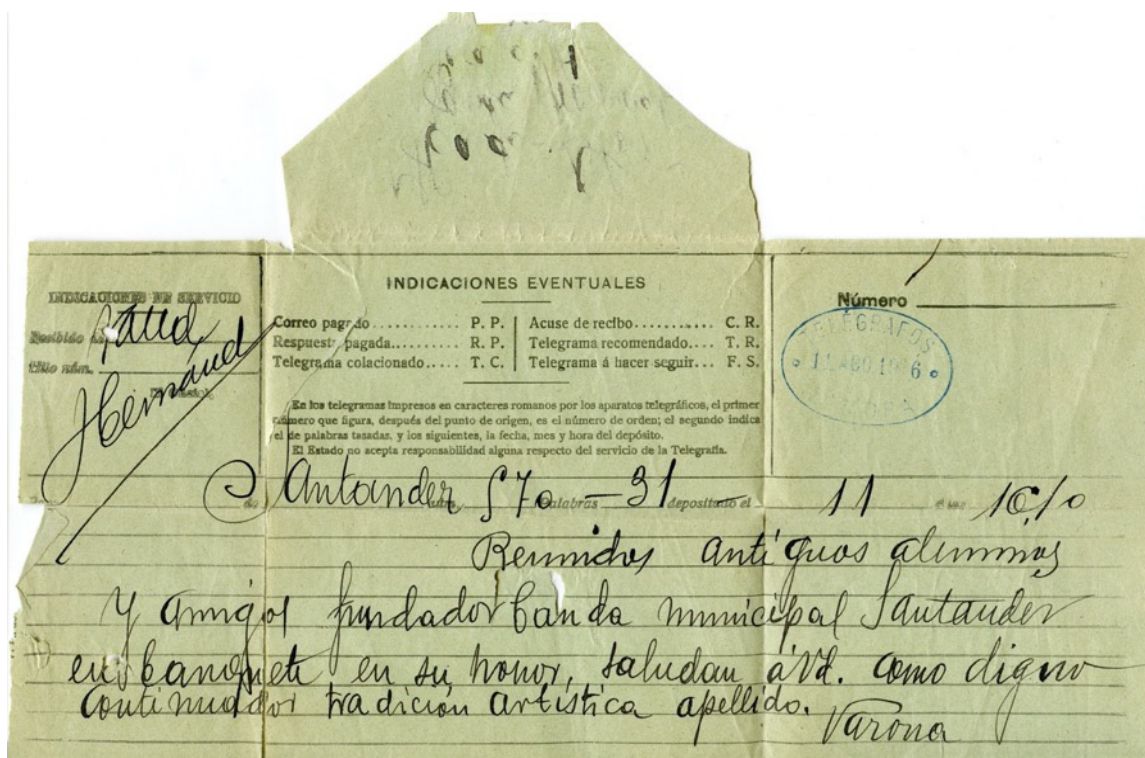 INDICACIONES DE SERVICIO
Recibido
Hilo núm.
Hernánd
INDICACIONES EVENTUALES
Correo pagado........... P. P. | Acuse de recibo........... C. R.
Respuesta pagada......... R. P. | Telegrama recomendado.... T. R.
Telegrama colacionado..... T. C. | Telegrama á hacer seguir... F. S.
En los telegramas impresos en caracteres romanos por los aparatos telegráficos, el primer
número que figura, después del punto de origen, es el número de orden; el segundo indica
el de palabras tasadas, y los siguientes, la fecha, mes y hora del depósito.
El Estado no acepta responsabilidad alguna respecto del servicio de la Telegrafía.
Número
TELÉGRAFOS
de Santander 570 palabras – 31 depositado el – 11 16/10
Reunidos antiguos alumnos
y amigos fundador banda municipal Santander
en banquete en su honor, saludan á Vd. como digno
continuador tradición artística apellido.
Varona